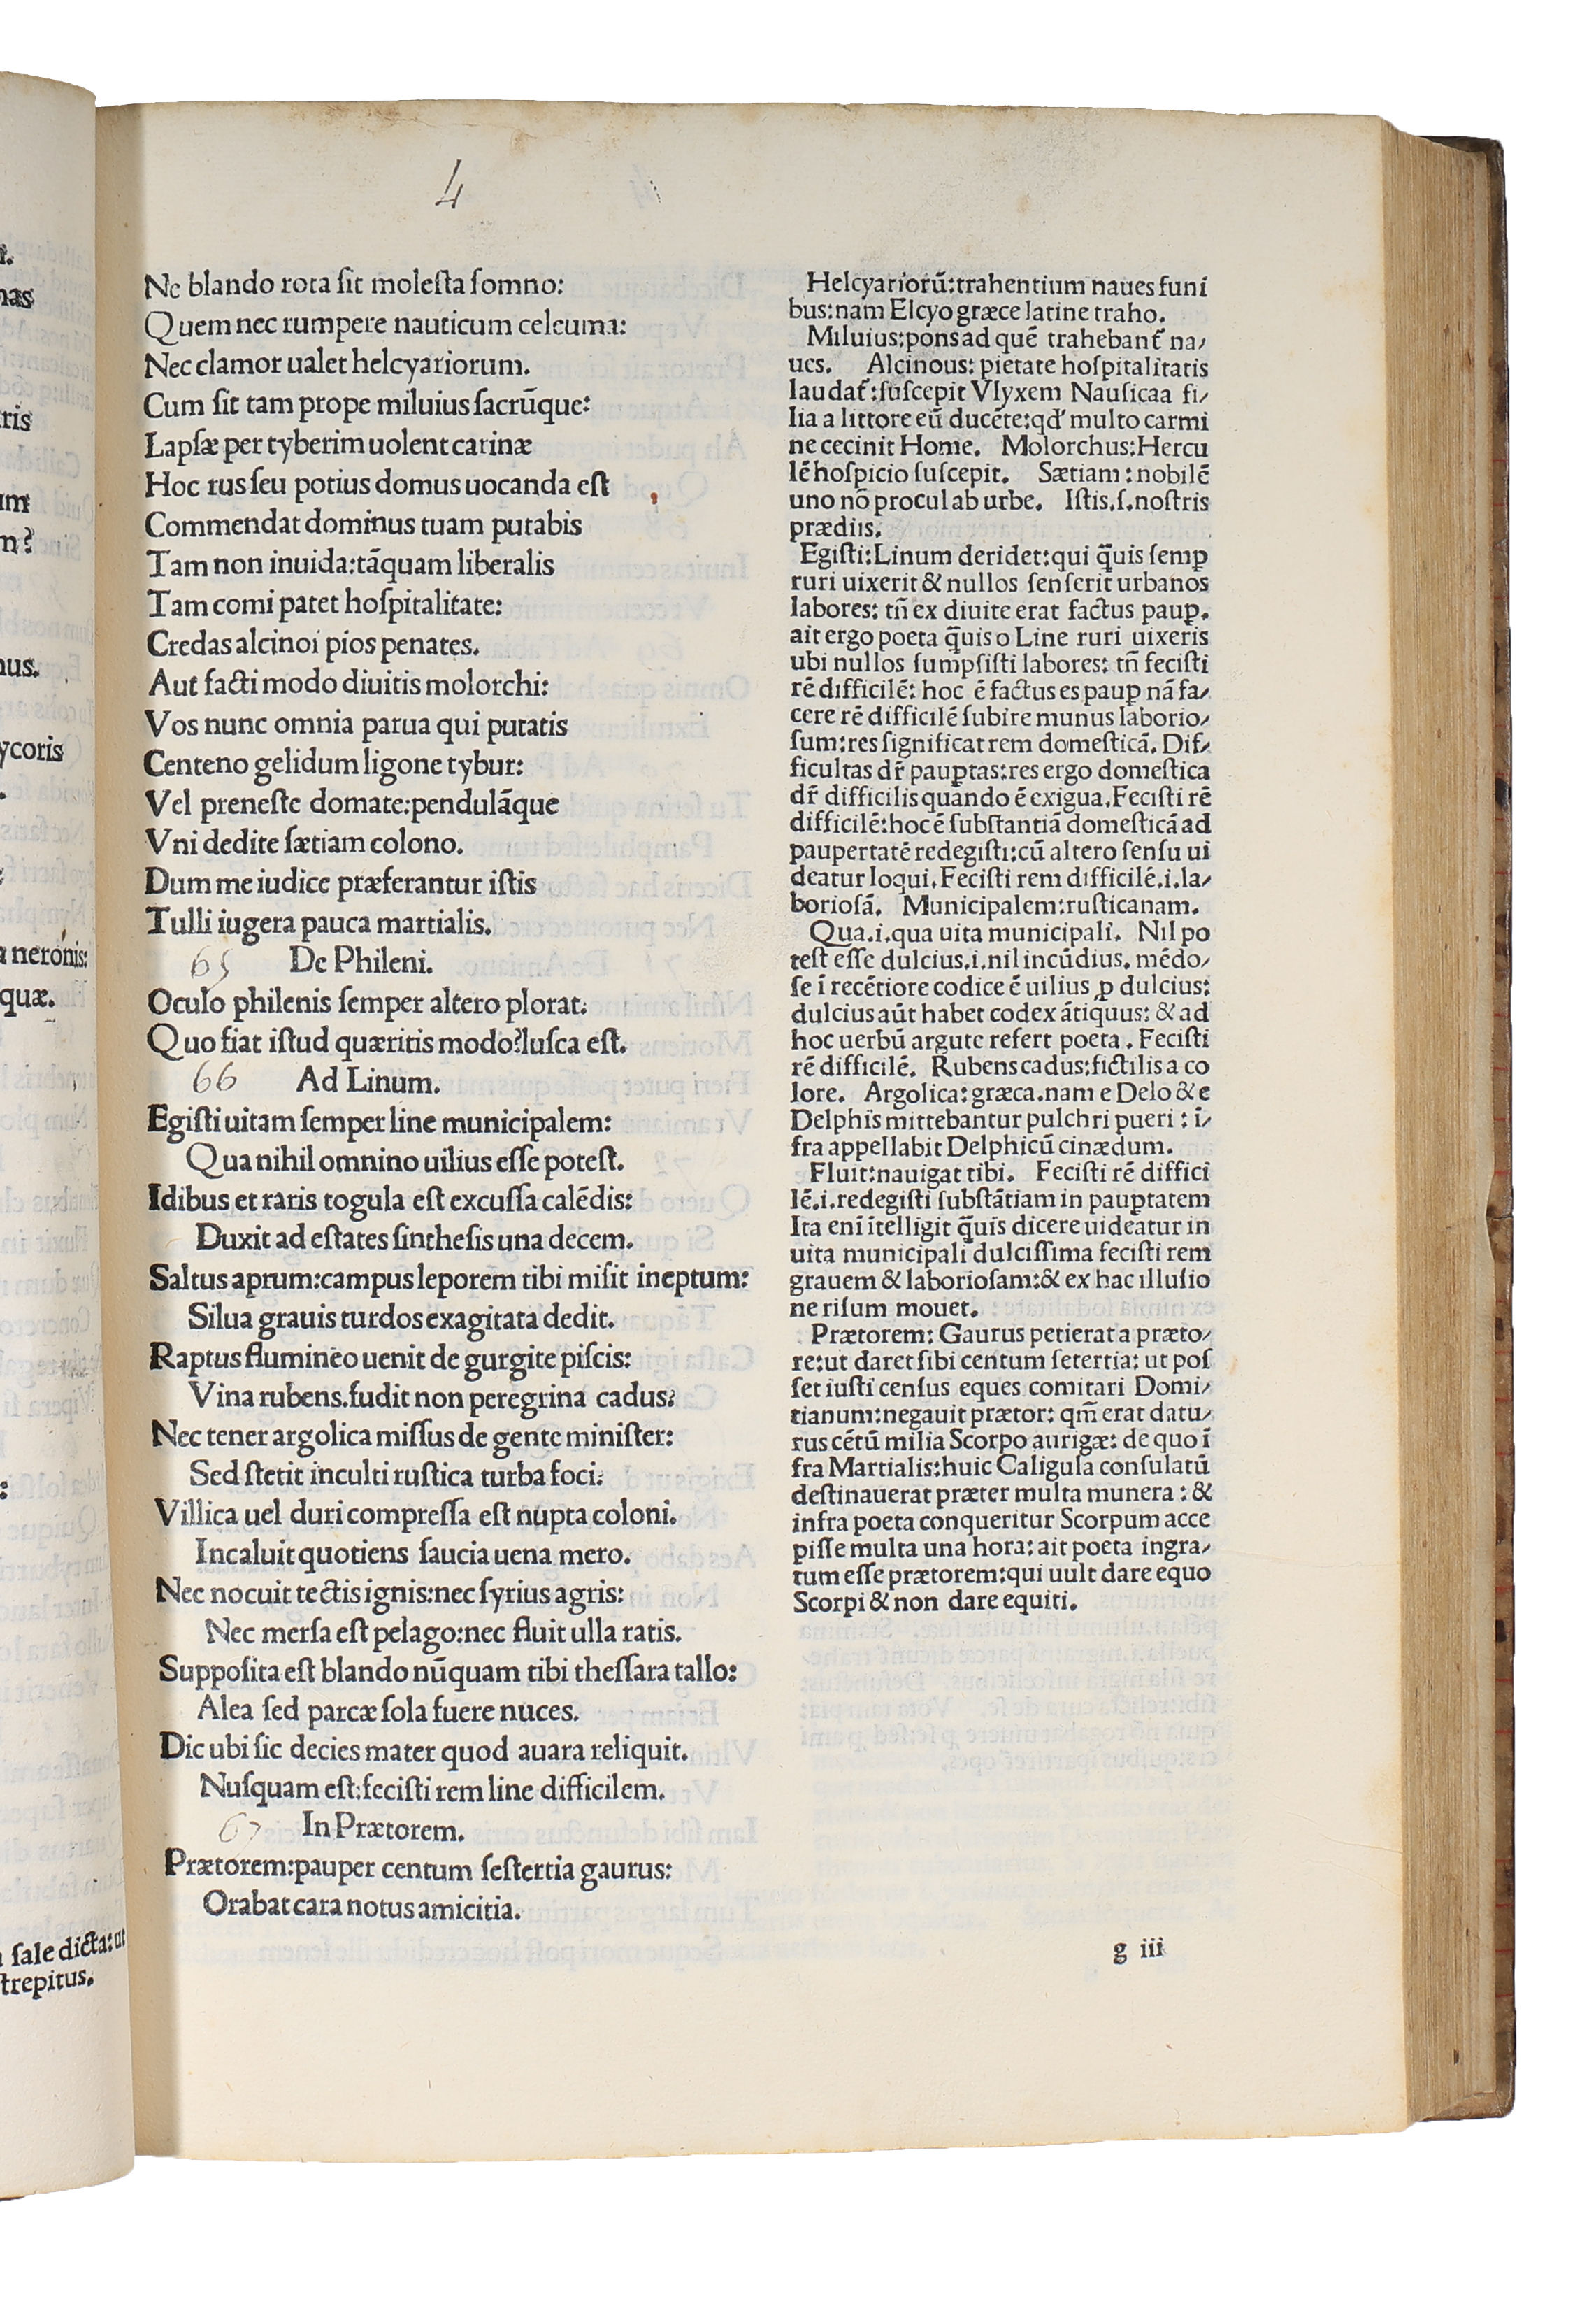 4
Ne blando rota sit molesta somno:
Quem nec rumpere nauticum celeuma:
Nec clamor ualet helcyariorum.
Cum sit tam prope miluius sacrũque:
Lapsæ per tyberim uolent carinæ
Hoc rus seu potius domus uocanda est
Commendat dominus tuam putabis
Tam non inuida:tãquam liberalis
Tam comi patet hospitalitate:
Credas alcinoi pios penates.
Aut facti modo diuitis molorchi:
Vos nunc omnia parua qui putatis
Centeno gelidum ligone tybur:
Vel preneste domate:pendulãque
Vni dedite sætiam colono.
Dum me iudice præferantur istis
Tulli iugera pauca martialis.
65 De Phileni.
Oculo philenis semper altero plorat.
Quo fiat istud quæritis modo?lusca est.
66 Ad Linum.
Egisti uitam semper line municipalem:
Qua nihil omnino uilius esse potest.
Idibus et raris togula est excussa calẽdis:
Duxit ad estates sinthesis una decem.
Saltus aprum:campus leporem tibi misit ineptum:
Silua grauis turdos exagitata dedit.
Raptus flumineo uenit de gurgite piscis:
Vina rubens.fudit non peregrina cadus.
Nec tener argolica missus de gente minister:
Sed stetit inculti rustica turba foci.
Villica uel duri compressa est nupta coloni.
Incaluit quotiens saucia uena mero.
Nec nocuit tectis ignis:nec syrius agris:
Nec mersa est pelago:nec fluit ulla ratis.
Supposita est blando nũquam tibi thessara tallo:
Alea sed parcæ sola fuere nuces.
Dic ubi sic decies mater quod auara reliquit.
Nusquam est:fecisti rem line difficilem.
67 In Prætorem.
Prætorem:pauper centum sestertia gaurus:
Orabat cara notus amicitia.
Helcyariorũ:trahentium naues funi
bus:nam Elcyo græce latine traho.
Miluius:pons ad quẽ trahebant̃ na/
ues. Alcinous: pietate hospitalitatis
laudat̃:suscepit Vlyxem Nausicaa fi/
lia a littore eũ ducẽte:qđ multo carmi
ne cecinit Home. Molorchus:Hercu
lẽ hospicio suscepit. Sætiam:nobilẽ
uno nõ procul ab urbe. Istis.s.nostris
prædiis.
Egisti:Linum deridet:qui q̃uis semꝑ
ruri uixerit & nullos senserit urbanos
labores: tñ ex diuite erat factus pauꝑ.
ait ergo poeta q̃uis o Line ruri uixeris
ubi nullos sumpsisti labores: tñ fecisti
rẽ difficilẽ: hoc ẽ factus es pauꝑ nã fa/
cere rẽ difficilẽ subire munus laborio/
sum:res significat rem domesticã. Dif/
ficultas dr̃ pauꝑtas:res ergo domestica
dr̃ difficilis quando ẽ exigua.Fecisti rẽ
difficilẽ:hoc ẽ substantiã domesticã ad
paupertatẽ redegisti:cũ altero sensu ui
deatur loqui.Fecisti rem difficilẽ.i.la/
boriosã. Municipalem:rusticanam.
Qua.i.qua uita municipali. Nil po
test esse dulcius.i.nil incũdius. mẽdo/
se ĩ recẽtiore codice ẽ uilius ꝓ dulcius:
dulcius aũt habet codex ãtiquus: & ad
hoc uerbũ argute refert poeta. Fecisti
rẽ difficilẽ. Rubens cadus:fictilis a co
lore. Argolica:græca.nam e Delo & e
Delphis mittebantur pulchri pueri : ĩ/
fra appellabit Delphicũ cinædum.
Fluit:nauigat tibi. Fecisti rẽ diffici
lẽ.i.redegisti substãtiam in pauꝑtatem
Ita enĩ ĩtelligit q̃uis dicere uideatur in
uita municipali dulcissima fecisti rem
grauem & laboriosam:& ex hac illusio
ne risum mouet.
Prætorem: Gaurus petierat a præto/
re:ut daret sibi centum setertia: ut pos
set iusti census eques comitari Domi/
tianum:negauit prætor: qm̃ erat datu/
rus cẽtũ milia Scorpo aurigæ: de quo ĩ
fra Martialis:huic Caligula consulatũ
destinauerat præter multa munera : &
infra poeta conqueritur Scorpum acce
pisse multa una hora: ait poeta ingra/
tum esse prætorem:qui uult dare equo
Scorpi & non dare equiti.
g iii
ris
ycoris
a neronis:
quæ.
sale dicta:ut
trepitus.